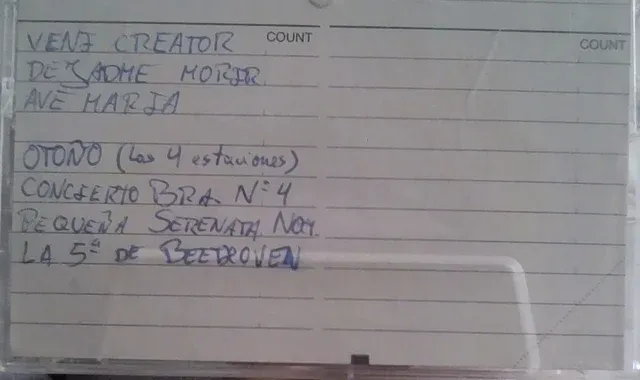 VENI CREATOR COUNT COUNT
DEJADME MORIR
AVE MARIA
OTOÑO (Las 4 estaciones)
CONCIERTO BRA. Nº 4
PEQUEÑA SERENATA NOCT.
LA 5ª DE BEETHOVEN